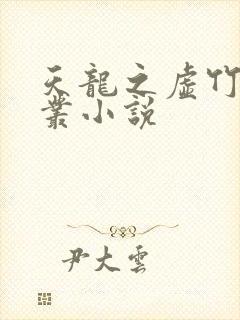 天龍之虛竹
叢小説
尹大雲